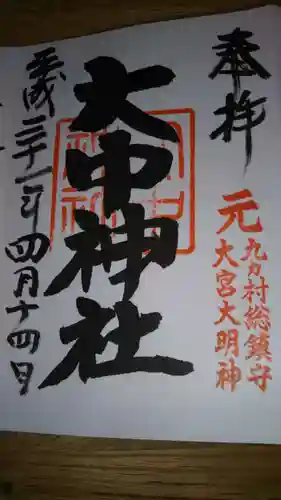 奉拝
元 九カ村総鎮守
大宮大明神
大中神社
平成三十一年四月十四日